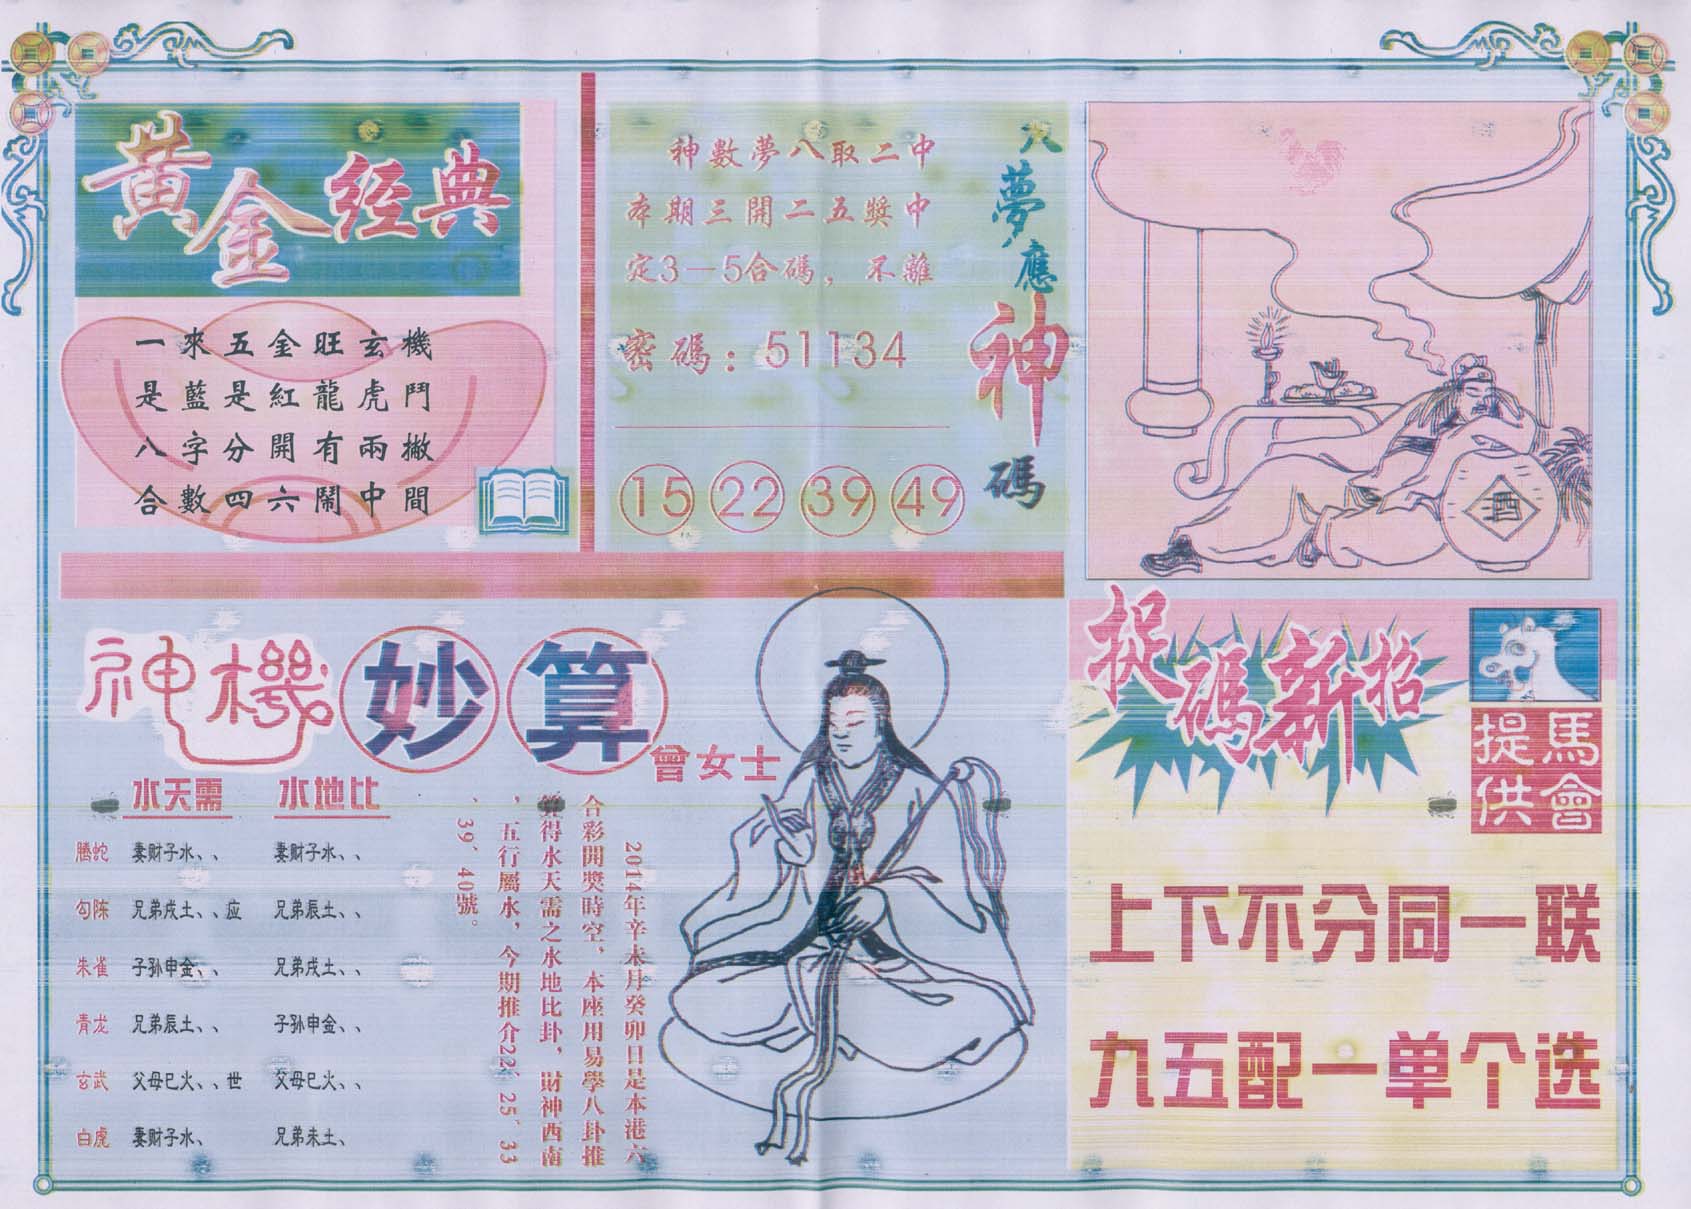 黃金經典
一來五金旺玄機
是藍是紅龍虎鬥
八字分開有兩撇
合數四六鬧中間
神數夢八取二中
本期三開二五獎中
定3－5合碼，不離
密碼：51134
15 22 39 49
八夢應神碼
酒
神機妙算
曾女士
水天需 水地比
騰蛇 妻财子水、、 妻财子水、、
勾陈 兄弟戍土、、应 兄弟辰土、、
朱雀 子孙申金、、 兄弟戍土、、
青龙 兄弟辰土、、 子孙申金、、
玄武 父母巳火、、世 父母巳火、、
白虎 妻财子水、 兄弟未土、
2014年辛未月癸卯日是本港六
合彩開獎時空，本座用易學八卦推
算得水天需之水地比卦，財神西南
，五行屬水，今期推介22、25、33
、39、40號。
捉碼新招
馬會
提供
上下不分同一联
九五配一单个选